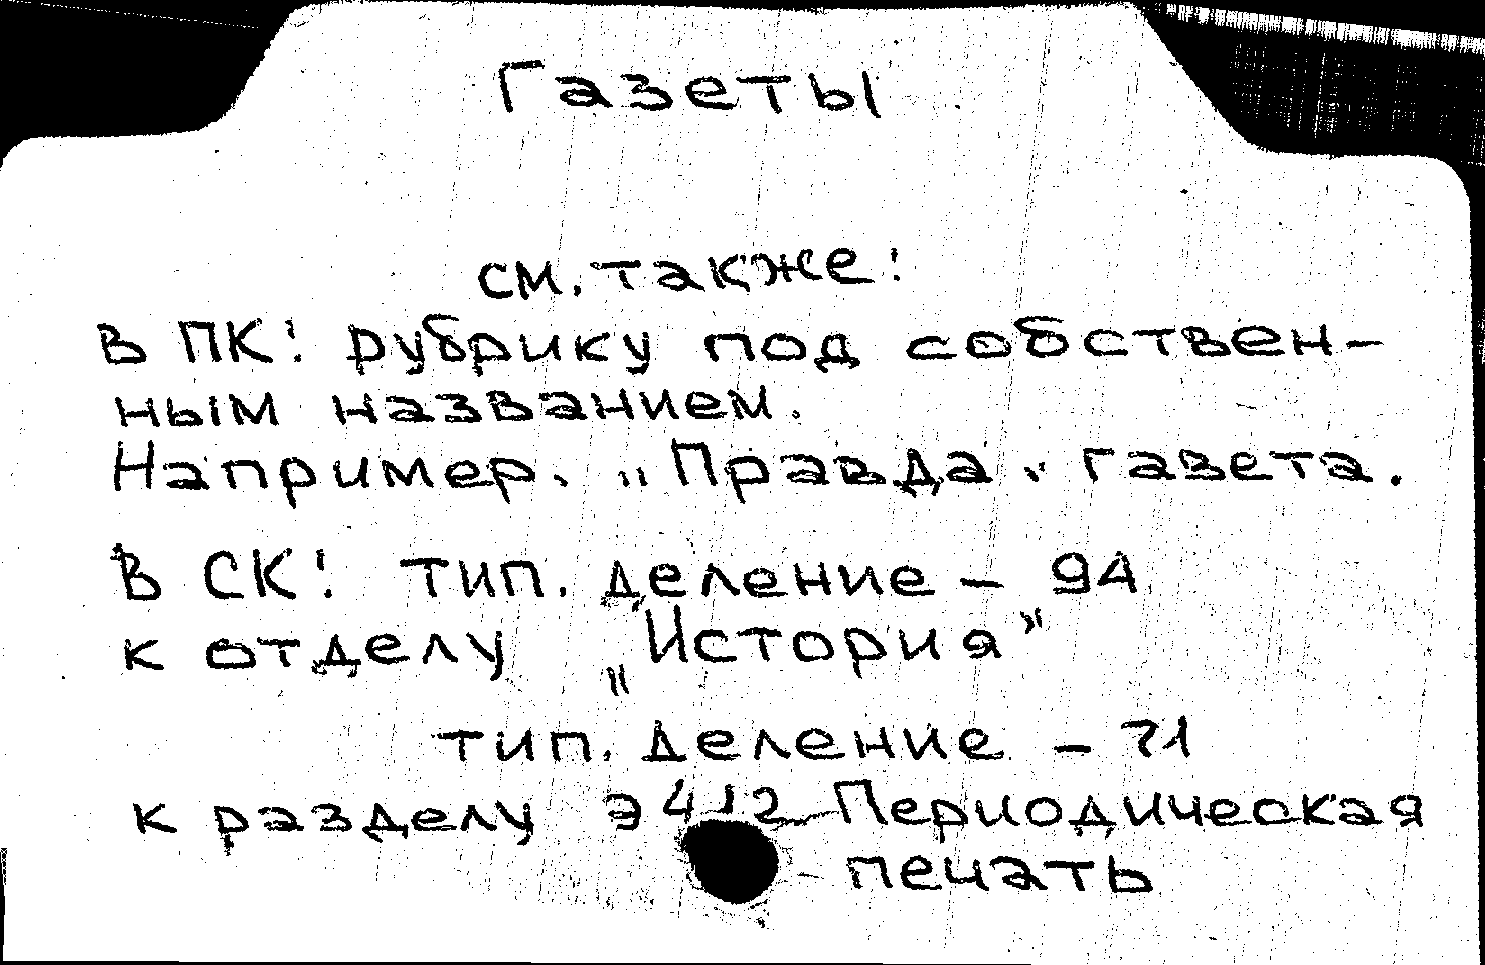 Газеты
см. также:
В ПК: рубрику под собствен-
ным названием.
Например. "Правда" газета.
В СК: тип. деление - 94
к отделу „История”
тип. деление - 71
к разделу Э412 Периодическая
печать